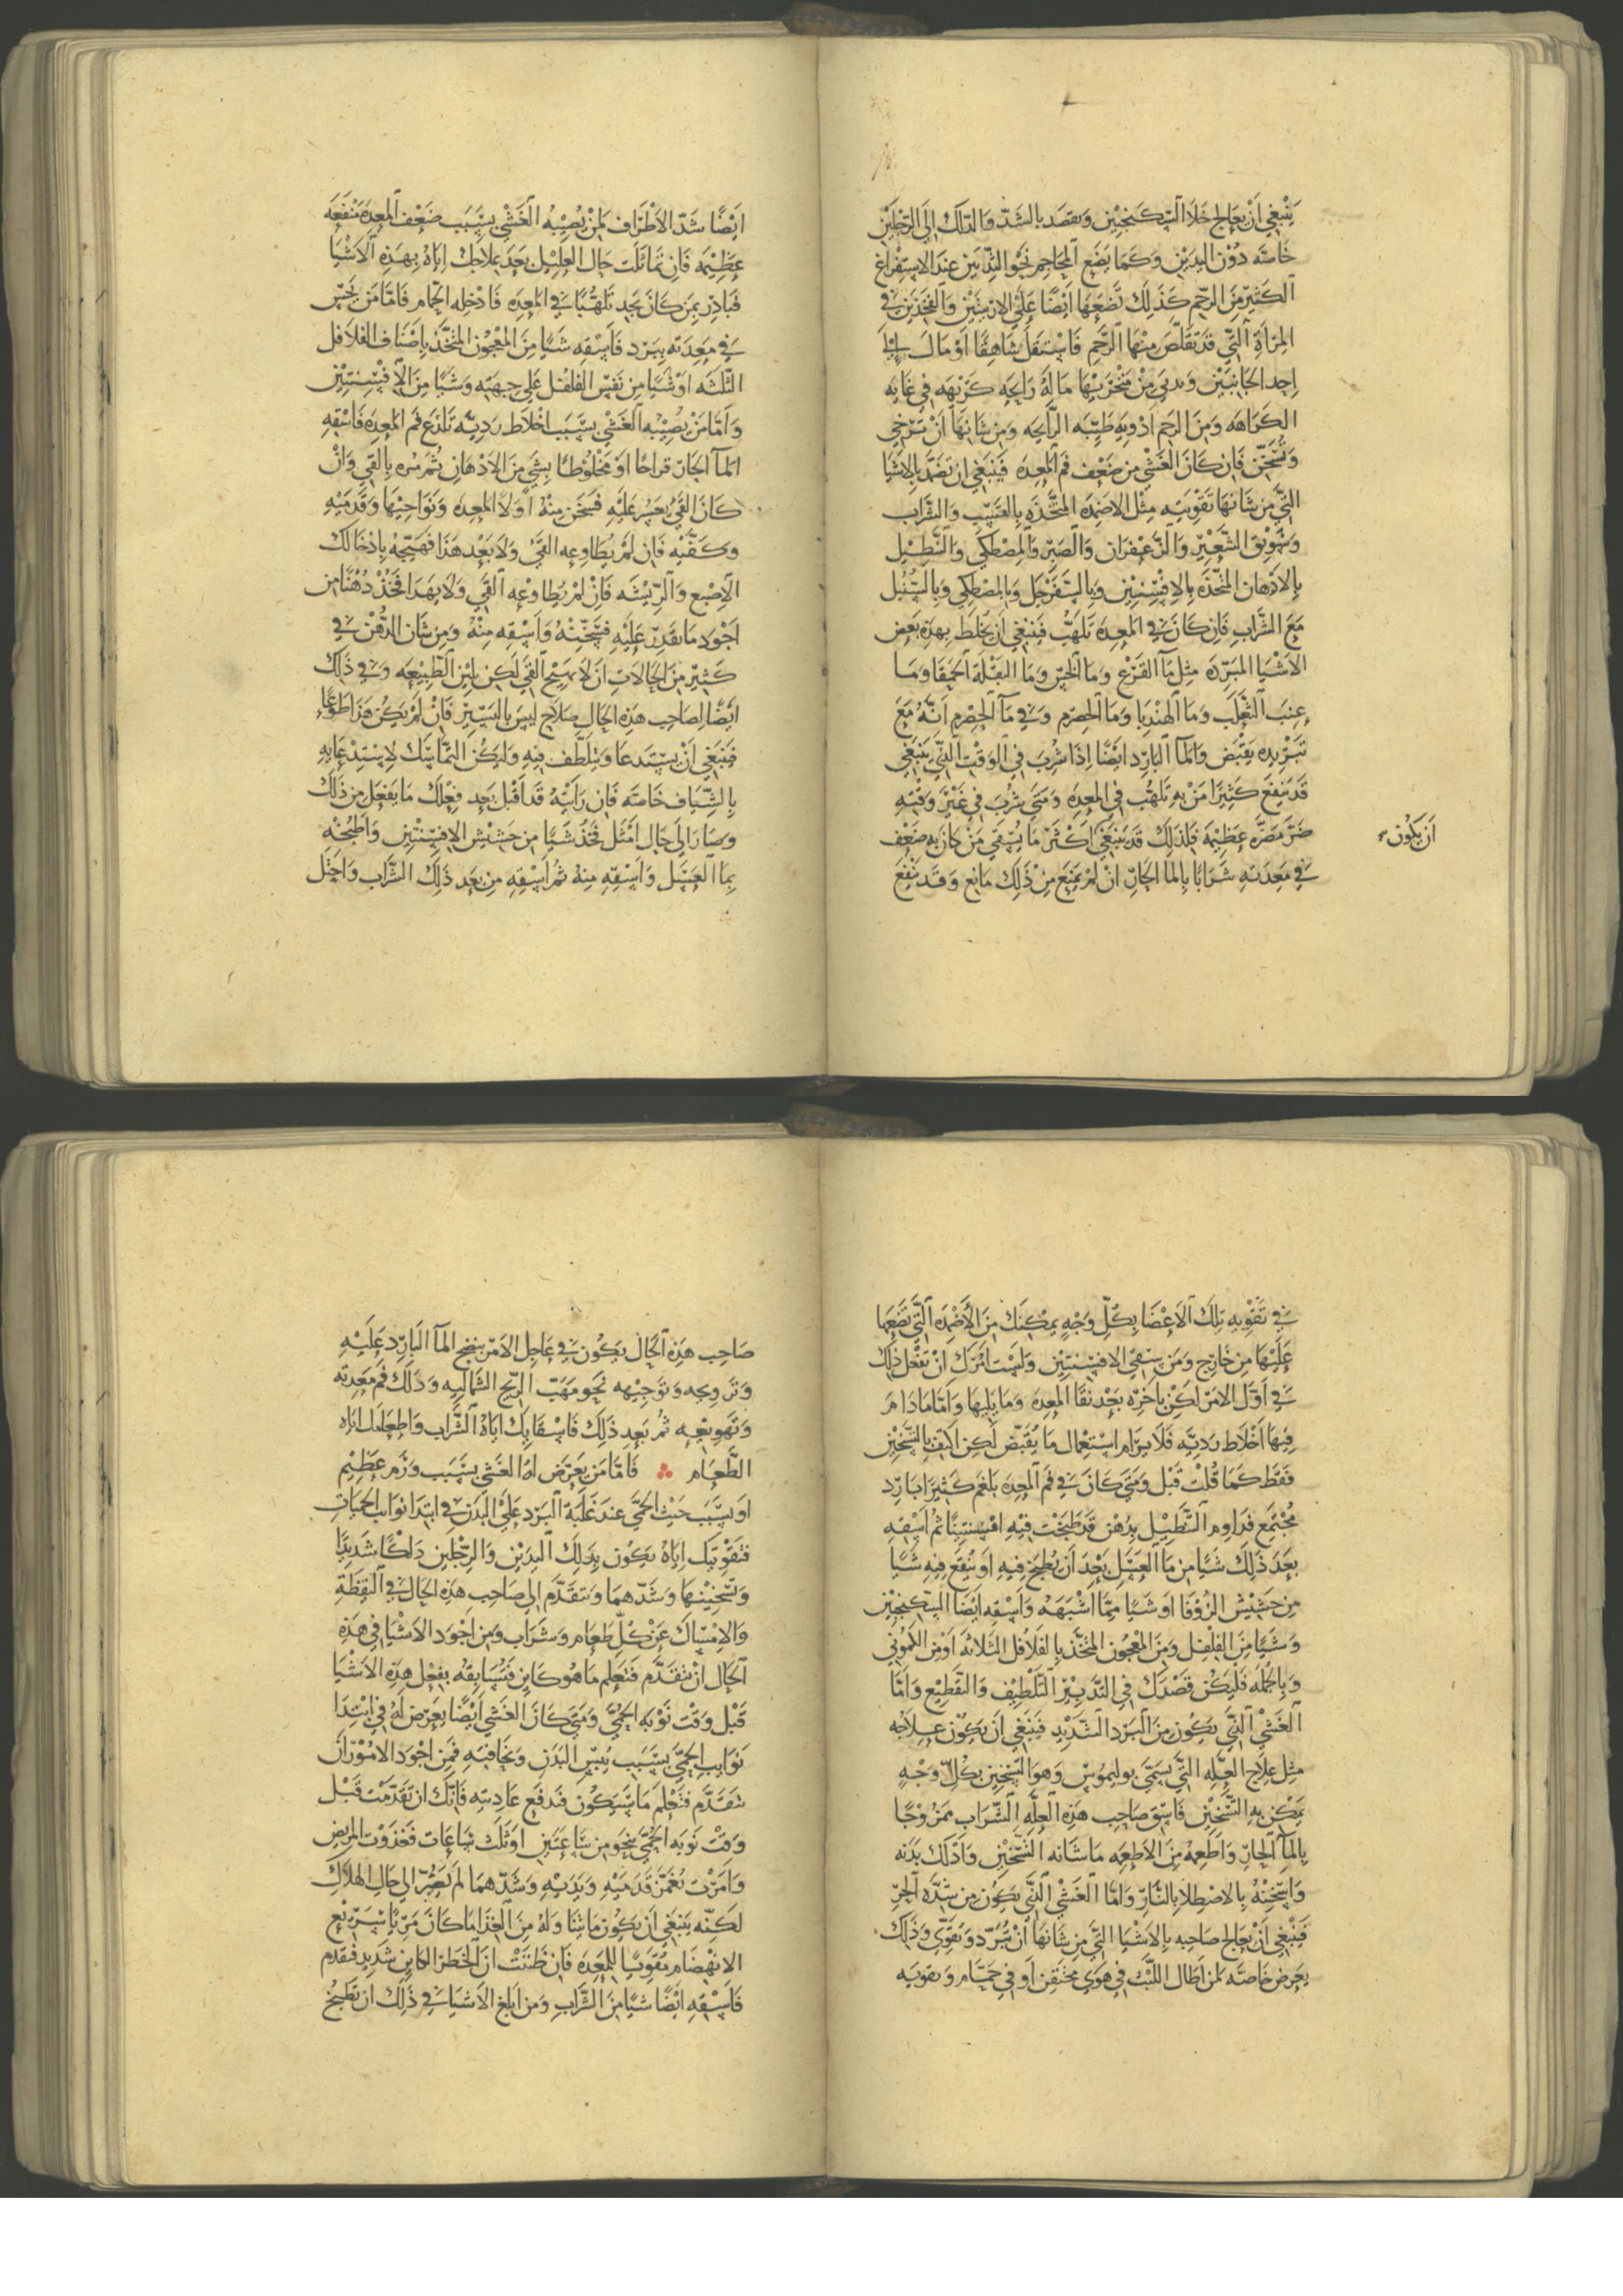 ينبغي ان يعالج خلا السكنجبين ويقصد بالشد والدلك الى الرجلين
خاصته دون اليدين وكما يضع المحاجم نحو الثديين عند الاستفراغ
الكثير من الرحم كذلك تضعها ايضا على الاربيتين والفخذين في
المراة التي قد تقلص منها الرحم فاستقل شاهقا او مال الى
احد الجانبين ويدني من منخريها ما له رايحه كريهه في غايه
الكراهه ومن الرحم ادويه طيبه الرايحه ومن شانها ان ترخي
وتسخن فان كان الغشي من ضعف فم المعده فينبغي ان تضمد بالاشيا
التي من شانها تقويته مثل الاضمده المتخذه بالقسب والشراب
وسويق الشعير والزعفران والصبر والمصطكي والتنطيل
بالادهان المتخذه بالافسنتين وبالسفرجل وبالمصطكي وبالسنبل
مع الشراب فان كان في المعده تلهب فينبغي ان يخلط بهذه بعض
الاشيا المبرده مثل مآ القرع وما الخس وما البقلة الحمقا وما
عنب الثعلب وما الهندبا وما الحصرم وفي مآ الحصرم انه مع
تبريده يقبض والمآ البارد ايضا اذا شرب في الوقت الذي ينبغي
قد ينفع كثيرا من به تلهب في المعده ومتى شرب في غير وقته
ضر مضره عظيمة فلذلك قد ينبغي اكثر ما يسقي من كان به ضعف
ان يكون
في معدته شرابا بالما الحار ان لم يمنع من ذلك مانع وقد ينفع
ايضا شد الاطراف لمن يصيبه الغشي بسبب ضعف المعده منفعه
عظيمه فان تماثلت حال العليل بعد علاجك اياه بهذه الاشيا
فبادر بمن كان يجد تلهبا في المعده فادخله الحمام فاما من يحس
في معدته ببرد فاسقه شيا من المعجون المتخذ باصناف الفلافل
الثلثه او شيا من نفس الفلفل على جهته وشيا من الافسنتين
واما من يصيبه الغشي بسبب اخلاط رديه تلذع فم المعده فاسقه
المآ الحار قراحا او مخلوطا بشي من الادهان ثم مره بالقي وان
كان القي يعسر عليه فسخن منه اولا المعده ونواحيها وقدميه
وكفيه فان لم يطاوعه القي ولا بعد هذا فهيجه بادخالك
الاصبع والريشه فان لم يطاوعه القي ولا بهذا فخذ دهنا من
اجود ما يقدر عليه فسخنه واسقه منه ومن شان الدهن في
كثير من الحالات ان لا يهيج القي لكن يلين الطبيعه وفي ذلك
ايضا لصاحب هذه الحال صلاح ليس باليسير فان لم يكن هذا طوعا
فينبغي ان يستدعا ويتلطف فيه وليكن التماسك لاستدعايه
بالشياف خاصته فان رايته قد اقبل بعد فعلك ما يفعل من ذلك
وصار الى حال امثل فخذ شيا من حشيش الافسنتين واطبخه
بما العسل واسقه منه ثم اسقه من بعد ذلك الشراب واحتل
في تقويه تلك الاعضا بكل وجه يمكنك من الاضمده التي تضعها
عليها من خارج ومن سقي الافسنتين ولست امرك ان تفعل ذلك
في اول الامر لكن باخره بعد نقا المعده وما يليها واما ما دام
فيها اخلاط رديه فلا يرام استعمال ما يقبض لكن اكتف بالتسخين
فقط كما قلت قبل ومتى كان في فم المعده بلغم كثير بارد
مجتمع فداوم التنطيل بدهن قد طبخت فيه افسنتينا ثم اسقه
بعد ذلك شيا من مآ العسل بعد ان يطبخ فيه او ينقع فيه شيا
من حشيش الزوفا او شيا مما اشبهه واسقه ايضا السكنجبين
وشيا من الفلفل ومن المعجون المتخذ بالفلافل الثلاثه او من الكموني
وبالجمله فليكن قصدك في التدبير التلطيف والتقطيع واما
الغشي الذي يكون من البرد الشديد فينبغي ان يكون علاجه
مثل علاج العله التي تسمى بوليموس وهو التسخين بكل وجه
يمكن به التسخين فاسق صاحب هذه العله الشراب ممزوجا
بالمآ الحار واطعمه من الاطعمه ما شانه التسخين وادلك بدنه
واسخنه بالاصطلا بالنار واما الغشي الذي يكون من شده الحر
فينبغي ان يعالج صاحبه بالاشيا التي من شانها ان تبرد وتقوي وذلك
يعرض خاصته لمن اطال اللبث في هوى مختنقن او في حمام وتقويه
صاحب هذه الحال يكون في عاجل الامر بنضح المآ البارد عليه
وترويحه وتوجيهه نحو مهب الريح الشماليه ودلك فم معدته
وتهويعه ثم بعد ذلك فاسقايك اياه الشراب واطعامك اياه
الطعام فاما من يعرض له الغشي بسبب ورم عظيم
او بسبب خبث الحمى عند غلبة البرد على البدن في ابتدا نوايب الحميات
فتقويتك اياه يكون بدلك اليدين والرجلين دلكا شديدا
وتسخينهما وشدهما وتتقدم الى صاحب هذه الحال في اليقظة
والامساك عن كل طعام وشراب ومن اجود الاشيا في هذه
الحال ان تتقدم فتعلم ما هو كاين فتسابقه بفعل هذه الاشيا
قبل وقت نوبه الحمى ومتى كان الغشي ايضا يعرض له في ابتدا
نوايب الحمى بسبب يبس البدن ونحافته فمن اجود الامور ان
تتقدم فتعلم ما سيكون فتدفع عاديته فانك ان تقدمت قبل
وقت نوبه الحمى بنحو من ساعتين او ثلث ساعات فغذوت المريض
وامرت بغمز قدميه ويديه وشدهما لم يصر الى حال الهلاك
لكنه ينبغي ان يكون ما تناوله من الغذا ما كان مريا سريع
الانهضام مقويا للمعده فان ظننت ان الخطر الكاين شديد فقدم
فاسقه ايضا شيا من الشراب ومن ابلغ الاشيا في ذلك ان تطبخ